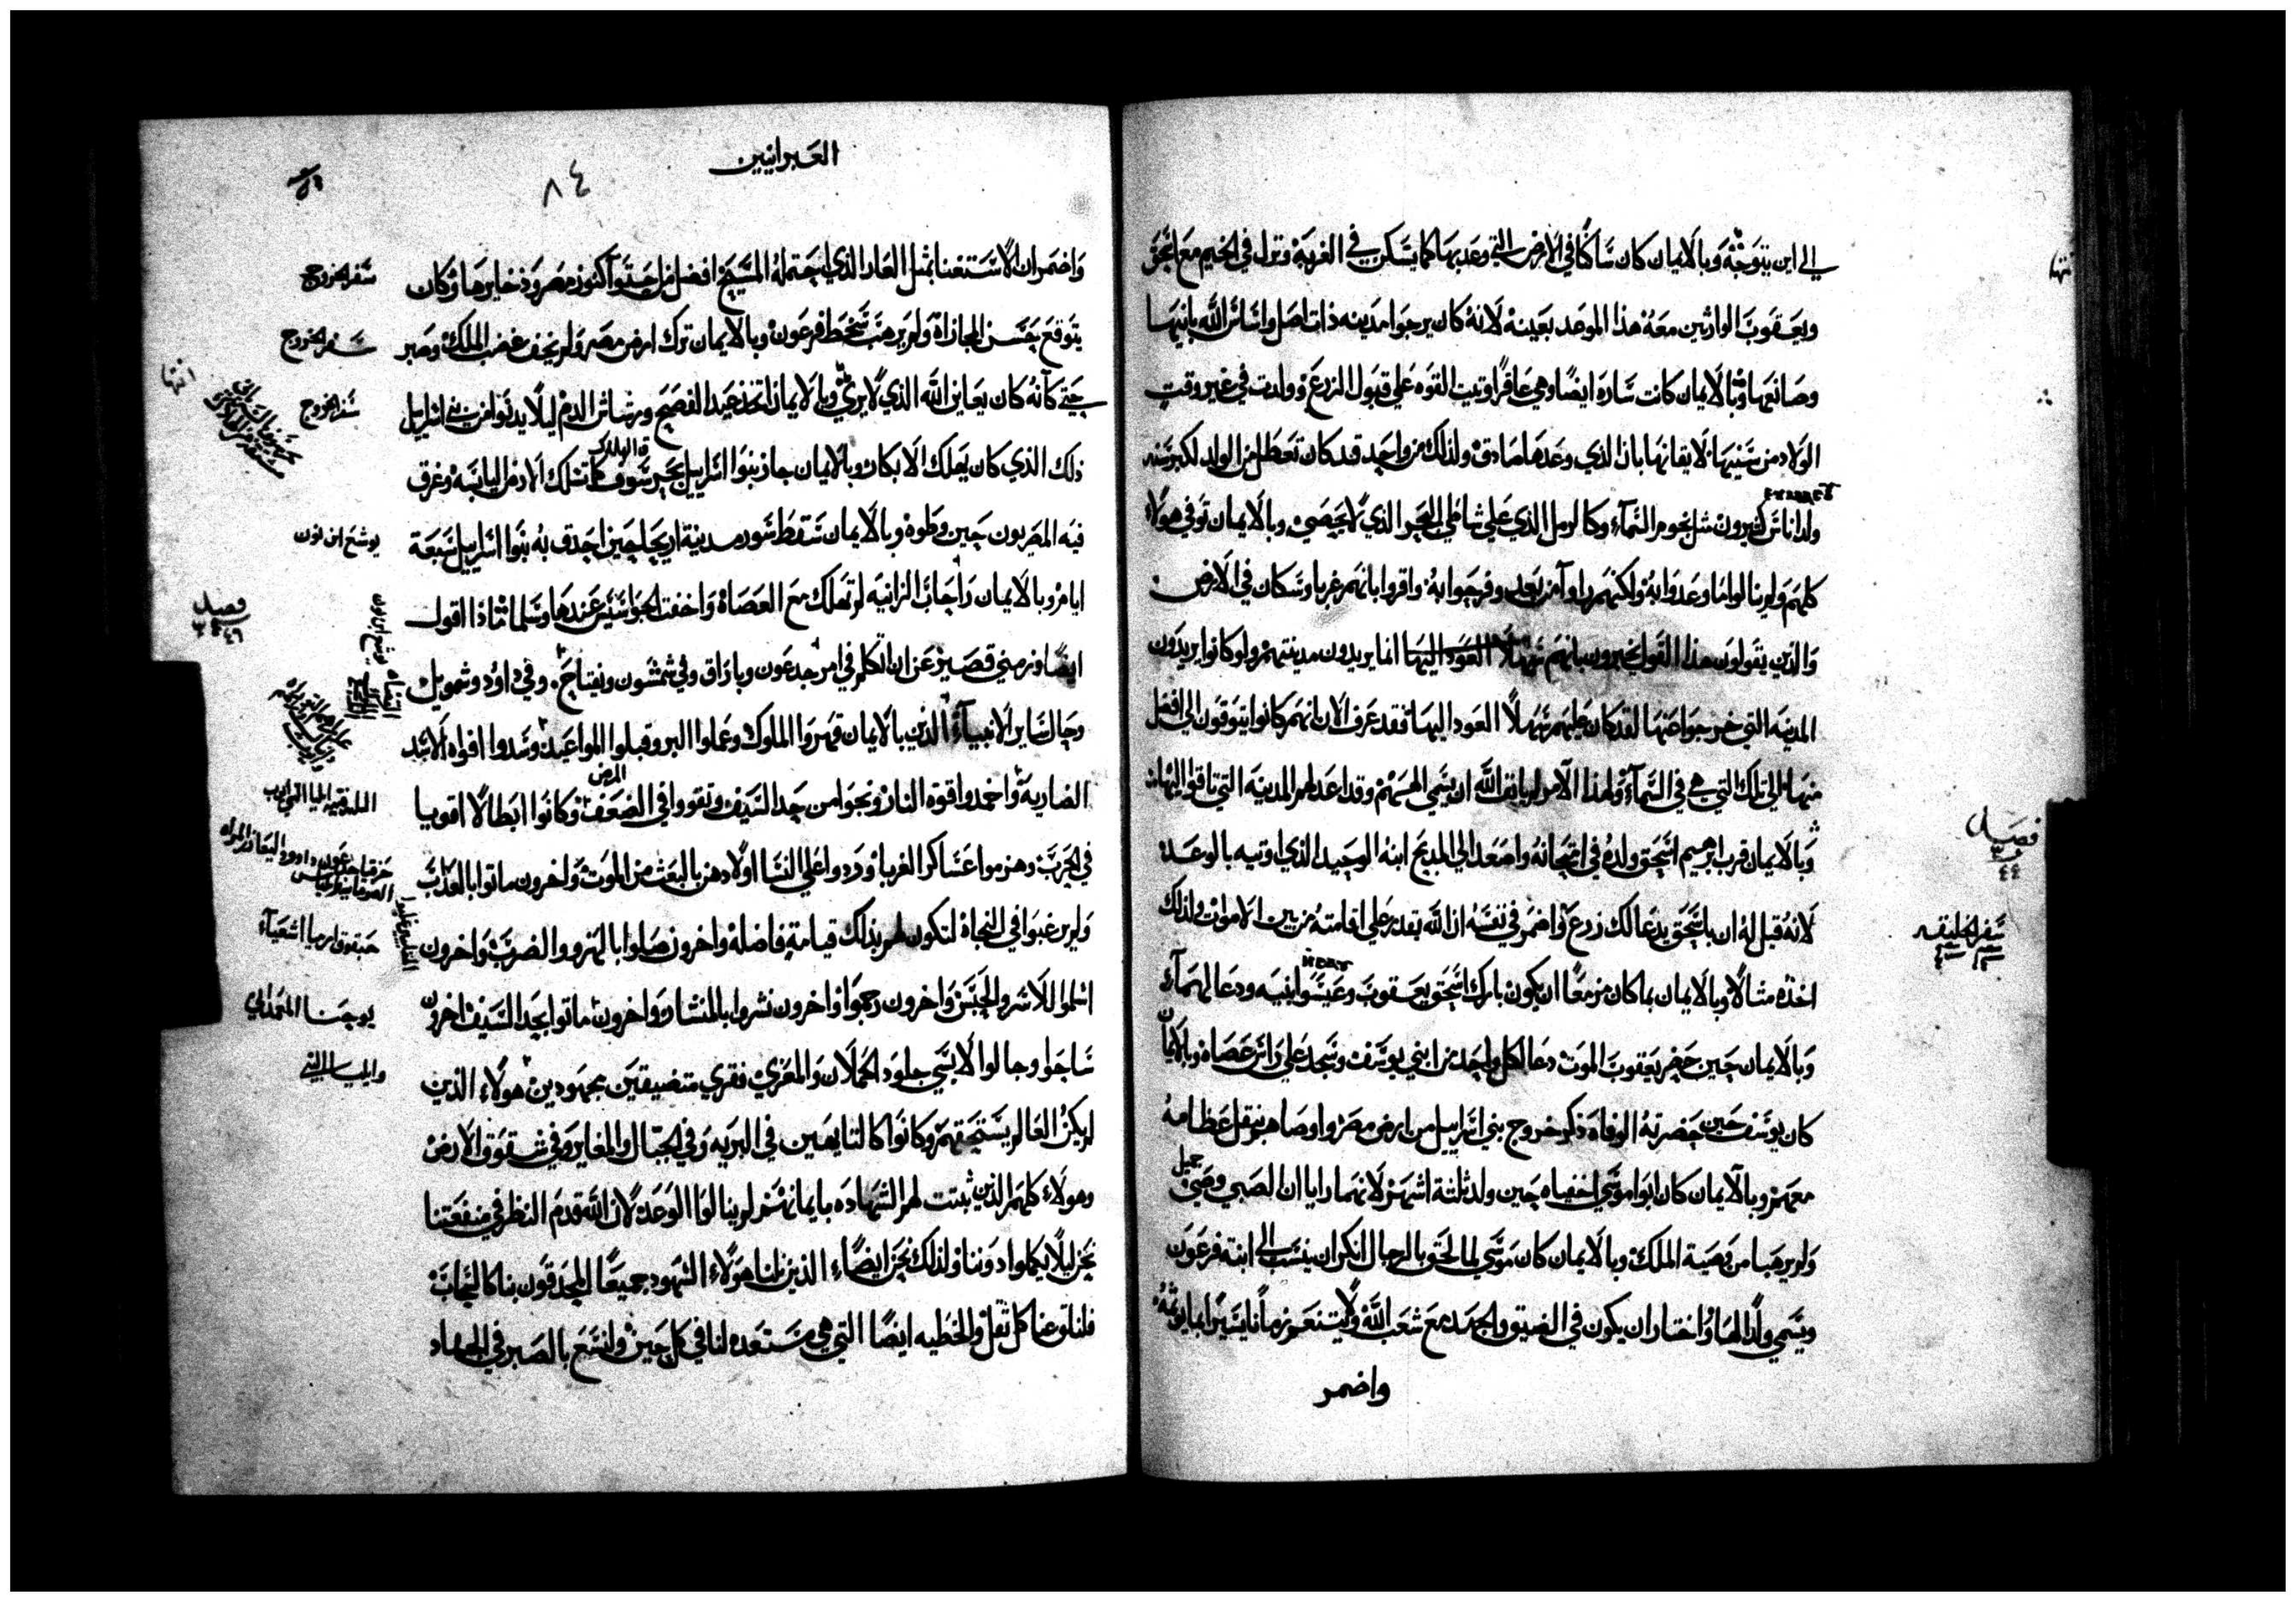 الي اين يتوجه وبالايمان كان ساكنا في الارض التي وعد بها كما يسكن في الغربة ونزل في الخيم مع اسحق
ويعقوب الوارثين معه هذا الموعد بعينه لانه كان يرجوا مدينه ذات اصل واساس الله بانيها
وصانعها وبالايمان كانت ساره ايضا وهي عاقرا اوتيت القوه علي قبول الزرع وولدت في غير وقت
الولاد من سنيها لايقانها بان الذي وعدها صادق ولذلك من واحد قد كان تعطل من الولد لكبر سنه
ولد اناس كثيرون مثل نجوم السماء وكالرمل الذي علي شاطي البحر الذي لا يحصي وبالايمان توفي هولاء
كلهم ولم ينالوا ما وعدوا به ولكنهم راوه من بعد وفرحوا به واقروا بانهم غربا وسكان في الارض
والذين يقولون هذا القول يخبرون بانهم انما يريدون مدينتهم ولو كانوا يريدون
المدينه التي خرجوا عنها لقد كان عليهم سهلا العود اليها فقد عرف الان انهم كانوا يتوقون الي افضل
منها الي تلك التي هي في السماء ولهذا الامر لم يانف الله ان يسمي الههم وقد اعد لهم المدينه التي تاقوا اليها
وبالايمان قرب ابرهيم اسحق ولده في امتحانه واصعد الي المذبح ابنه الوحيد الذي اوتيه بالوعد
لانه قيل له ان باسحق يدعا لك زرع واضمر في نفسه ان الله يقدر علي اقامته من بين الاموات ولذلك
اخذه مثالا وبالايمان بما كان مزمعا ان يكون بارك اسحق يعقوب وعيسوا ابنيه ودعا لهما
وبالايمان حين حضر يعقوب الموت دعا لكل واحد من ابني يوسف وسجد علي راس عصاه وبالايمان
كان يوسف حين حضرته الوفاة ذكر خروج بني اسراييل من ارض مصر واوصاهم بنقل عظامه
معهم وبالايمان كان ابوا موسي اخفياه حين ولد ثلثة اشهر لانهما رايا ان الصبي وضي جميل
ولم يرهبا من وصية الملك وبالايمان كان موسي لما لحق بالرجال انكر ان ينسب الي ابنة فرعون
ويسمي ولدا لها واختار ان يكون في الضيق والجهد مع شعب الله ولا يتنعم زمانا يسيرا
واضمر
فصل
٤٤
سفر الخليقه
العبرانيين
٨٤
واضمر ان الاستغنا بمثل العار الذي احتمله المسيح افضل من احتوا كنوز مصر وذخايرها وكان
يتوقع حسن المجازاة ولم يرهب سخط فرعون وبالايمان ترك ارض مصر ولم يخف غضب الملك وصبر
حتي كانه كان يعاين الله الذي لا يري وبالايمان اتخذ عيد الفصح ورشاش الدم ليلا يدنوا من بني اسراييل
ذلك الذي كان يهلك الابكار وبالايمان جاز بنوا اسراييل بحر سوف كما تسلك الارض اليابسه وغرق
فيه المصريون حين وطوه وبالايمان سقط سور مدينة اريحا حين احدق به بنوا اسراييل سبعة
ايام وبالايمان راحاب الزانيه لم تهلك مع العصاة واخفت الجواسيس عندها وسلما فماذا اقول
ايضا وزمني قصير عن ان اتكلم في امر جدعون وباراق وفي شمشون ويفتاح وفي داود وشمويل
وحال ساير الانبياء الذين بالايمان قهروا الملوك وعملوا البر وقبلوا المواعيد وسدوا افواه الاسد
الضاريه واخمدوا قوة النار ونجوا من حد السيف وتقووا في الضعف وكانوا ابطالا اقويا
في الحرب وهزموا عساكر الغربا وردوا علي النسا اولادهن بالبعث من الموت واخرون ماتوا بالعذاب
ولم يرغبوا في النجاة لتكون لهم بذلك قيامة فاضله واخرون صلوا بالهزو والضرب واخرون
اسلموا للاسر والحبس واخرون رجموا واخرون نشروا بالمنشار واخرون ماتوا بحد السيف اخرون
ساحوا وجالوا لابسي جلود الحملان والمعزي فقري متضيقين مجهودين هولاء الذين
لم يكن العالم يستحقهم وكانوا كالتايهين في البريه وفي الجبال والمغاير وفي شقوق الارض
وهولاء كلهم الذين ثبتت لهم الشهاده بايمانهم لم ينالوا الوعد لان الله قدم النظر في منفعتنا
نحن ليلا يكملوا دوننا ولذلك نحن ايضا الذين لنا هولاء الشهود جميعا المحدقون بنا كالسحاب
فلنلق عنا كل ثقل والخطيه ايضا التي هي مستعده لنا في كل حين ولنسع بالصبر في الجهاد
سفر الخروج
سفر الخروج
سفر الخروج
يوشع ابن نون
فصل
٤٦
حبقوق ارميا اشعياء
يوحنا المعمداني
والياس النبي